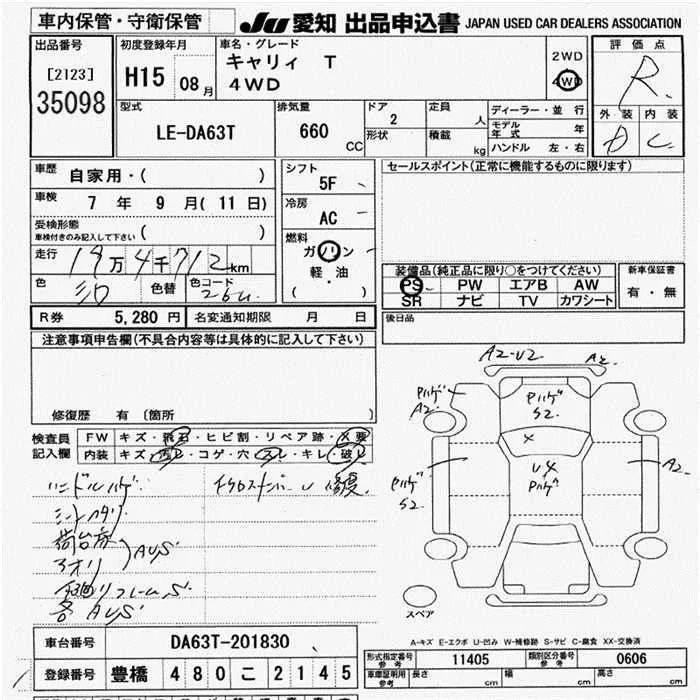 車内保管・守衛保管
JU 愛知 出品申込書 JAPAN USED CAR DEALERS ASSOCIATION
出品番号
[2123]
35098
初度登録年月
H15 08月
車名・グレード
キャリィ T
4WD
2WD
4WD
評価点
R
外装 内装
D C
型式
LE-DA63T
排気量
660 CC
ドア
2
形状
定員 人
積載 kg
ディーラー・並行
モデル年式 年
ハンドル 左・右
車歴
自家用・( )
車検
7 年 9 月(11日)
受検形態
車検付きのみ記入して下さい ( )
走行
19万4千712km
色
シロ
色替
色コード
26U
シフト
5F
冷房
AC
燃料
ガソリン
軽・油
( )
セールスポイント(正常に機能するものに限ります)
装備品(純正品に限り○をつけてください)
PS PW エアB AW
SR ナビ TV カワシート
新車保証書
有・無
R券 5,280円 名変通知期限 月 日
後日品
注意事項申告欄(不具合内容等は具体的に記入して下さい)
修復歴 有 〔箇所 〕
検査員
記入欄
FW キズ・飛石・ヒビ割・リペア跡・X要
内装 キズ・汚レ・コゲ・穴・スレ・キレ・破レ
ハンドルハゲ
荷台床
アオリ
AUS
下廻りフレームS
各AUS
A2-U2
A2
Pハゲ
A2
Pハゲ
S2
X
U4
Pハゲ
Pハゲ
S2
A2
スペア
A-キズ E-エクボ U-凹み W-補修跡 S-サビ C-腐食 XX-交換済
車台番号 DA63T-201830
登録番号 豊橋 480こ2145
形式指定番号
参考
11405
類別区分番号
参考
0606
車庫証明用
参考
長さ cm
幅 cm
高さ cm